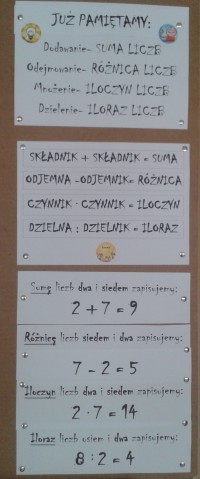 JUŻ PAMIĘTAMY:
Dodawanie- SUMA LICZB
Odejmowanie- RÓŻNICA LICZB
Mnożenie- ILOCZYN LICZB
Dzielenie- ILORAZ LICZB
SKŁADNIK + SKŁADNIK = SUMA
ODJEMNA -ODJEMNIK= RÓŻNICA
CZYNNIK · CZYNNIK = ILOCZYN
DZIELNA : DZIELNIK = ILORAZ
Sumę liczb dwa i siedem zapisujemy:
2 + 7 = 9
Różnicę liczb siedem i dwa zapisujemy:
7 - 2 = 5
Iloczyn liczb dwa i siedem zapisujemy:
2 · 7 = 14
Iloraz liczb osiem i dwa zapisujemy:
8 : 2 = 4